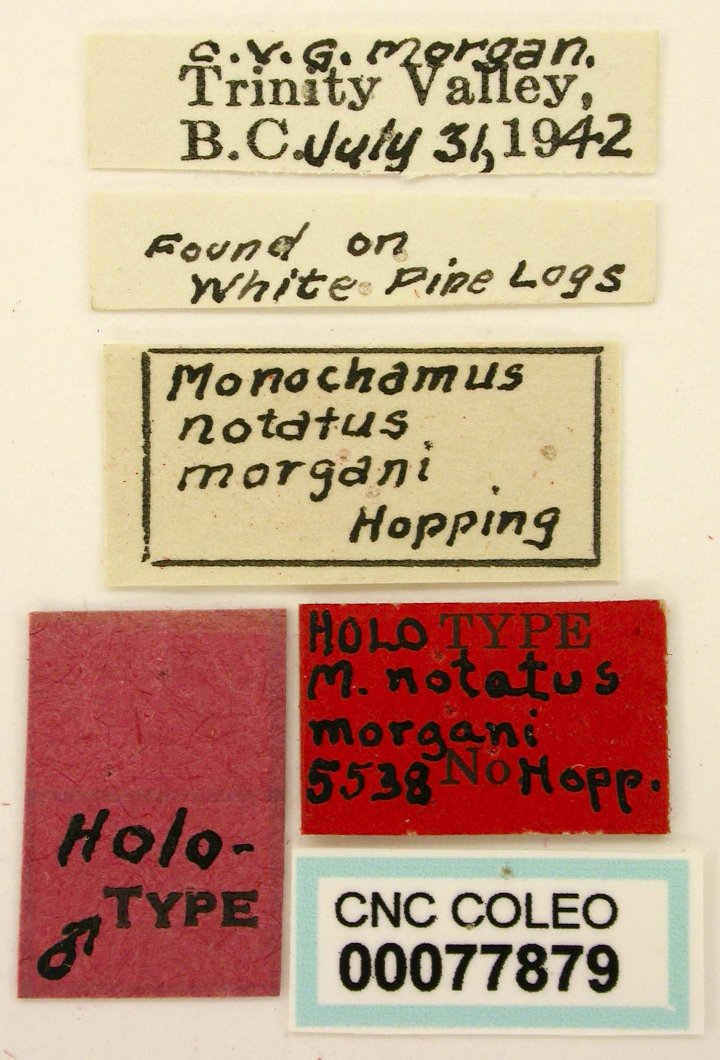 C.V.G. Morgan.
Trinity Valley,
B.C. July 31, 1942
Found on
White Pine Logs
Monochamus
notatus
morgani
Hopping
Holo-
TYPE
♂
HOLO TYPE
M. notatus
morgani
5538 No Hopp.
CNC COLEO
00077879